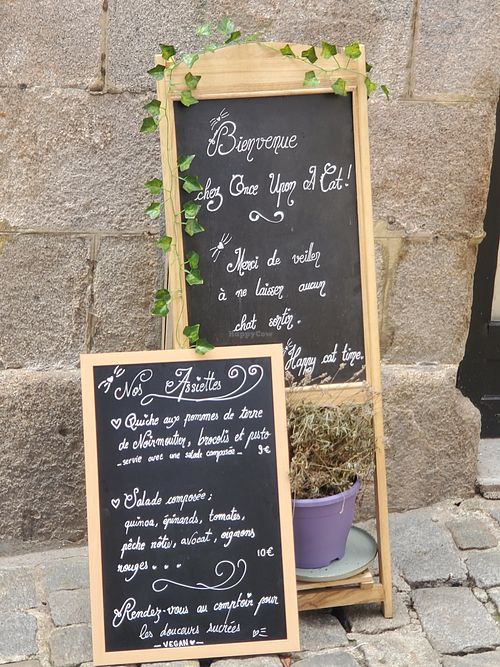 Bienvenue
chez Once Upon A Cat!
Merci de veiller
à ne laisser aucun
chat sortir.
Happy cat time.
HappyCow
Nos Assiettes
♡ Quiche aux pommes de terre
de Noirmoutier, brocolis et pesto
- servie avec une salade composée - 9€
♡ Salade composée;
quinoa, épinards, tomates,
pêche rôtie, avocat, oignons
rouges... 10€
Rendez-vous au comptoir pour
les douceurs sucrées
- VEGAN ♥ -